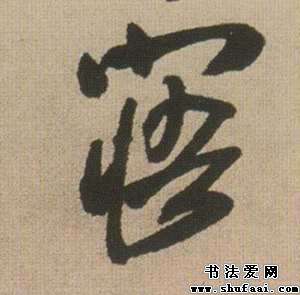 寤
书法爱网
www.shufaai.com